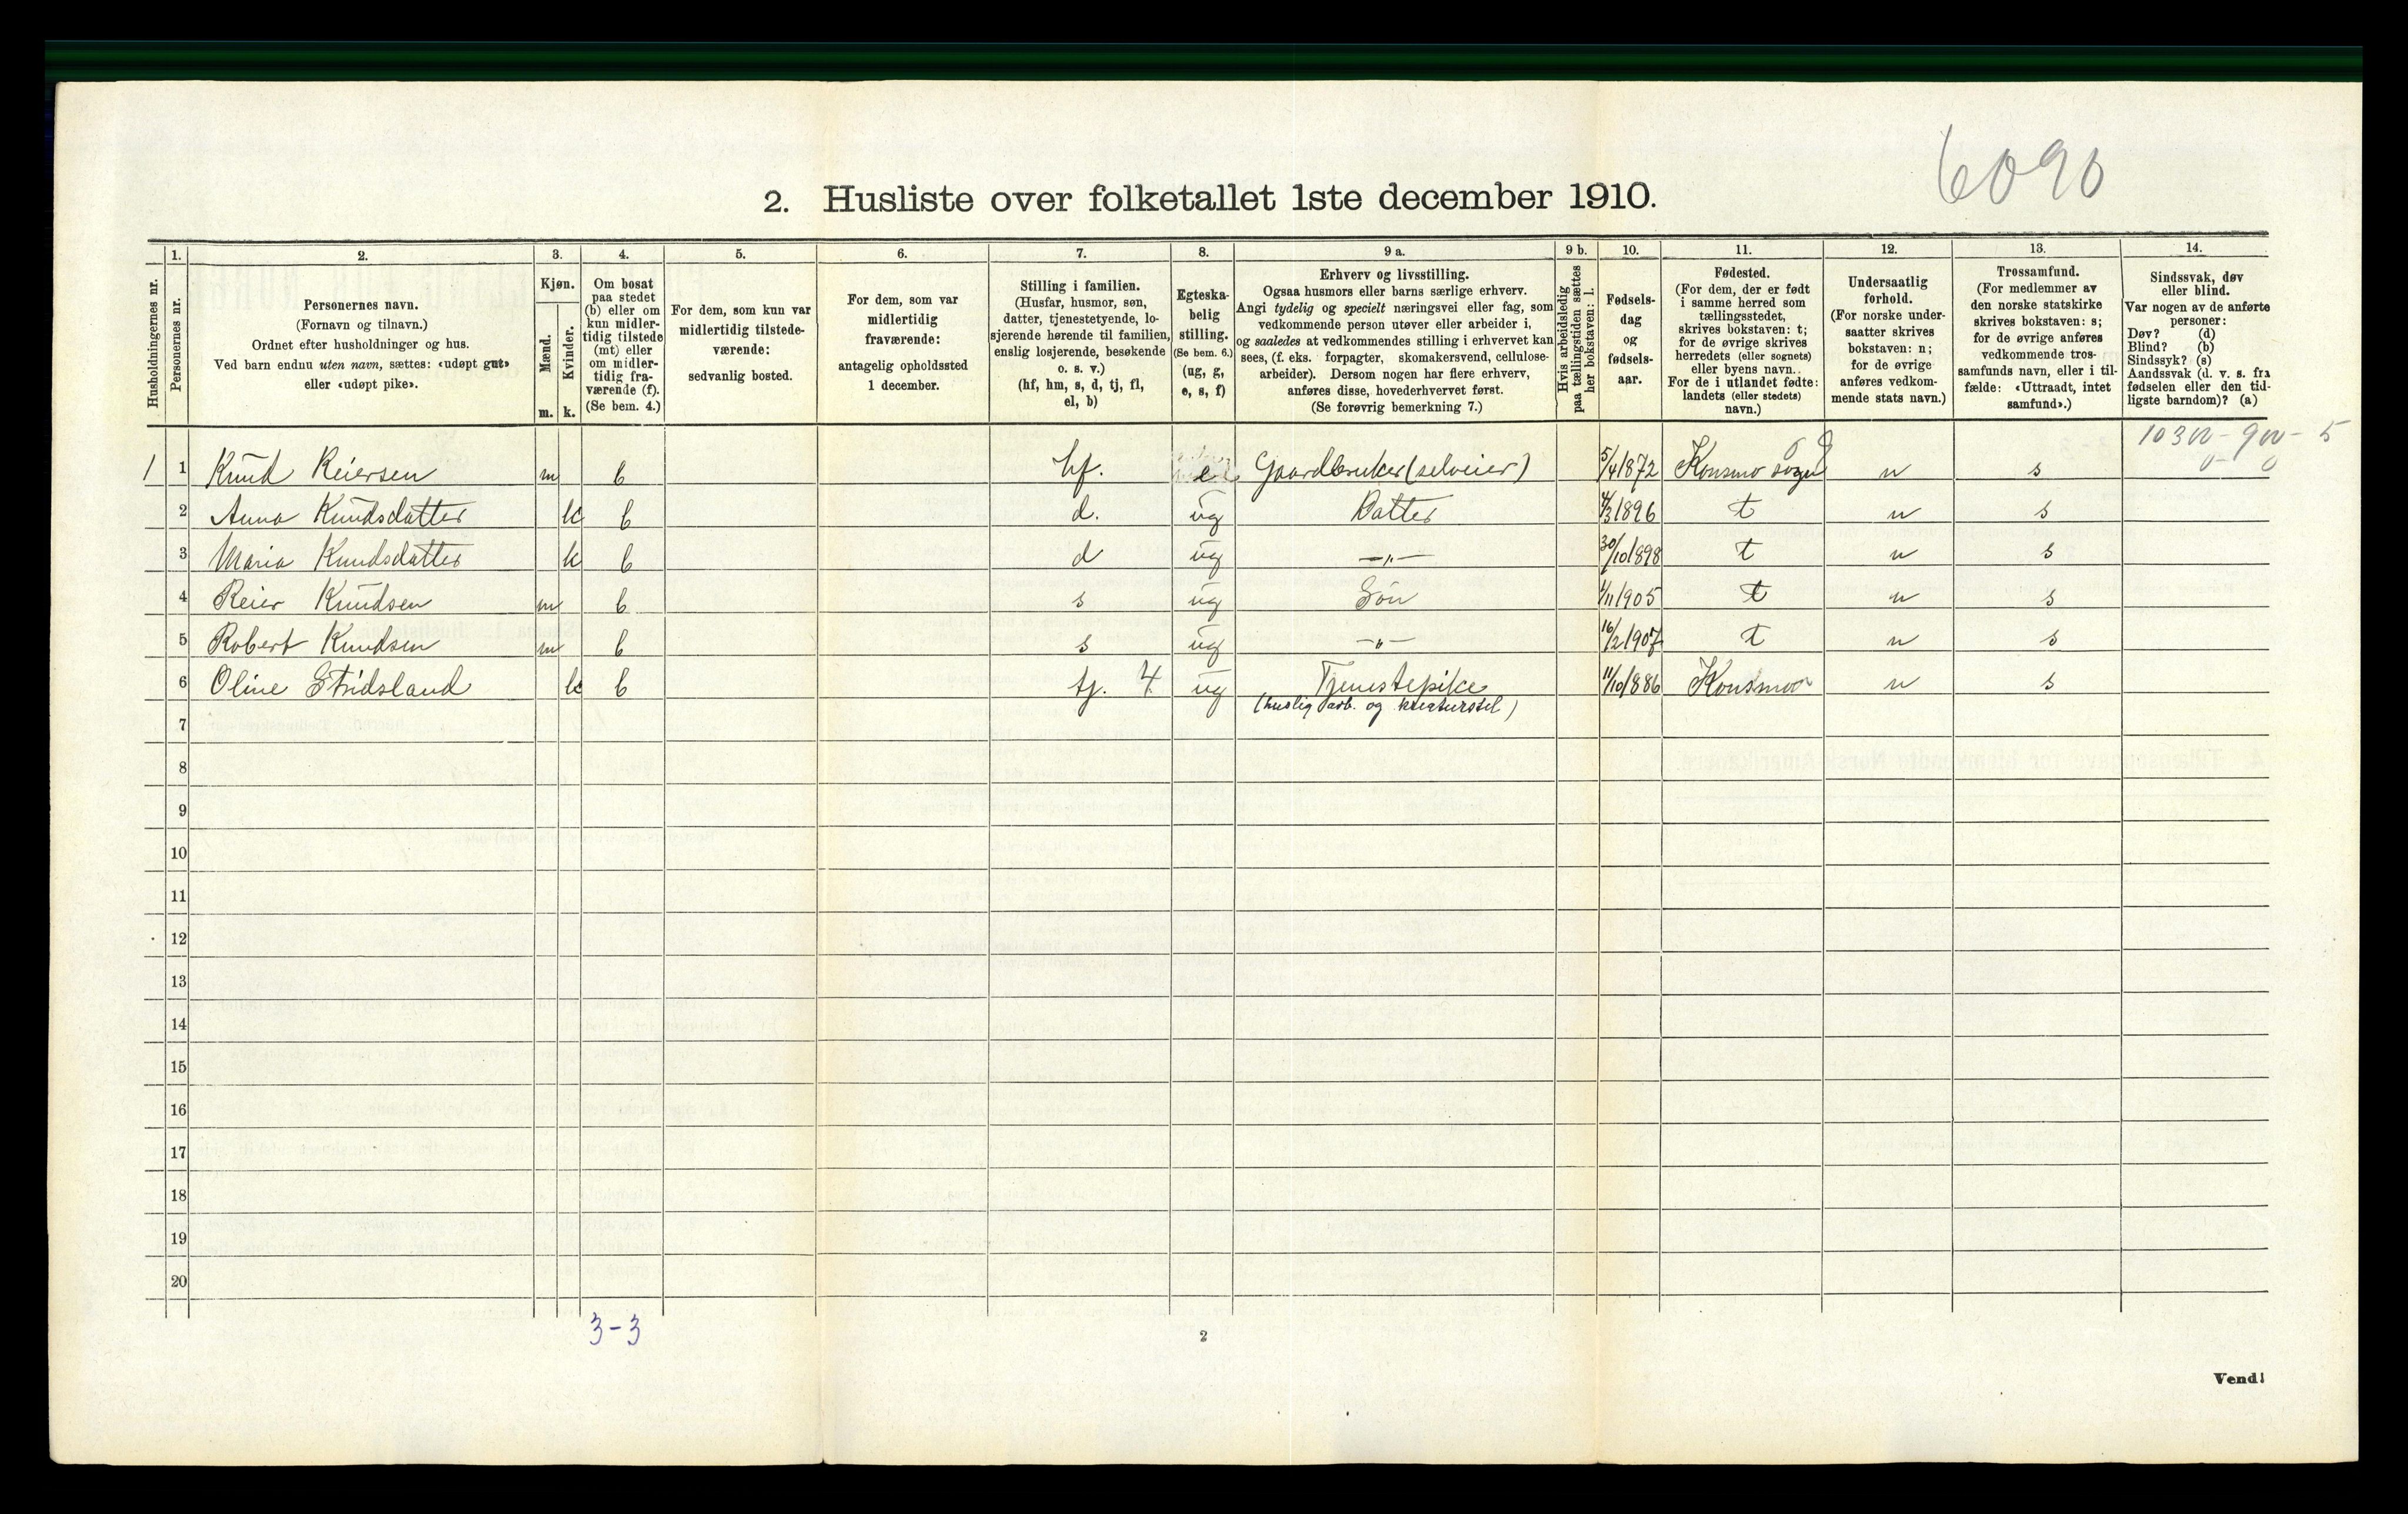 6090
2. Husliste over folketallet 1ste december 1910.
Husholdningernes nr.
1.
Personernes nr.
2.
Personernes navn.
(Fornavn og tilnavn.)
Ordnet efter husholdninger og hus.
Ved barn endnu uten navn, sættes: «udøpt gut»
eller «udøpt pike».
3.
Kjøn.
Mænd.
Kvinder.
m. k.
4.
Om bosat
paa stedet
(b) eller om
kun midler-
tidig tilstede
(mt) eller
om midler-
tidig fra-
værende (f).
(Se bem. 4.)
5.
For dem, som kun var
midlertidig tilstede-
værende:
sedvanlig bosted.
6.
For dem, som var
midlertidig
fraværende:
antagelig opholdssted
1 december.
7.
Stilling i familien.
(Husfar, husmor, søn,
datter, tjenestetyende, lo-
sjerende hørende til familien,
enslig losjerende, besøkende
o. s. v.)
(hf, hm, s, d, tj, fl,
el, b)
8.
Egteska-
belig
stilling.
(Se bem. 6.)
(ug, g,
e, s, f)
9 a.
Erhverv og livsstilling.
Ogsaa husmors eller barns særlige erhverv.
Angi tydelig og specielt næringsvei eller fag, som
vedkommende person utøver eller arbeider i,
og saaledes at vedkommendes stilling i erhvervet kan
sees, (f. eks. forpagter, skomakersvend, cellulose-
arbeider). Dersom nogen har flere erhverv,
anføres disse, hovederhvervet først.
(Se forøvrig bemerkning 7.)
9 b.
Hvis arbeidsledig
paa tællingstiden sættes
her bokstaven: l.
10.
Fødsels-
dag
og
fødsels-
aar.
11.
Fødested.
(For dem, der er født
i samme herred som
tællingsstedet,
skrives bokstaven: t;
for de øvrige skrives
herredets (eller sognets)
eller byens navn.
For de i utlandet fødte:
landets (eller stedets)
navn.)
12.
Undersaatlig
forhold.
(For norske under-
saatter skrives
bokstaven: n;
for de øvrige
anføres vedkom-
mende stats navn.)
13.
Trossamfund.
(For medlemmer av
den norske statskirke
skrives bokstaven: s;
for de øvrige anføres
vedkommende tros-
samfunds navn, eller i til-
fælde: «Uttraadt, intet
samfund».)
14.
Sindssvak, døv
eller blind.
Var nogen av de anførte
personer:
Døv? (d)
Blind? (b)
Sindssyk? (s)
Aandssvak (d. v. s. fra
fødselen eller den tid-
ligste barndom)? (a)
10300-900-5
0-0
1 1 Knud Reiersen m b hf. e Gaardbruker (selveier) 5/4 1872 Konsmo sogn n s
2 Anna Knudsdatter k b d. ug Datter 4/3 1896 t n s
3 Maria Knudsdatter k b d ug —"— 30/10 1898 t n s
4 Reier Knudsen m b s ug Søn 1/11 1905 t n s
5 Robert Knudsen m b s ug —"— 16/2 1907 t n s
6 Oline Stridsland k b tj. 4 ug Tjenestepike 11/10 1886 Konsmo n s
(huslig arb. og kreaturstel)
7
8
9
10
11
12
13
14
15
16
17
18
19
20
3-3
2
Vend!